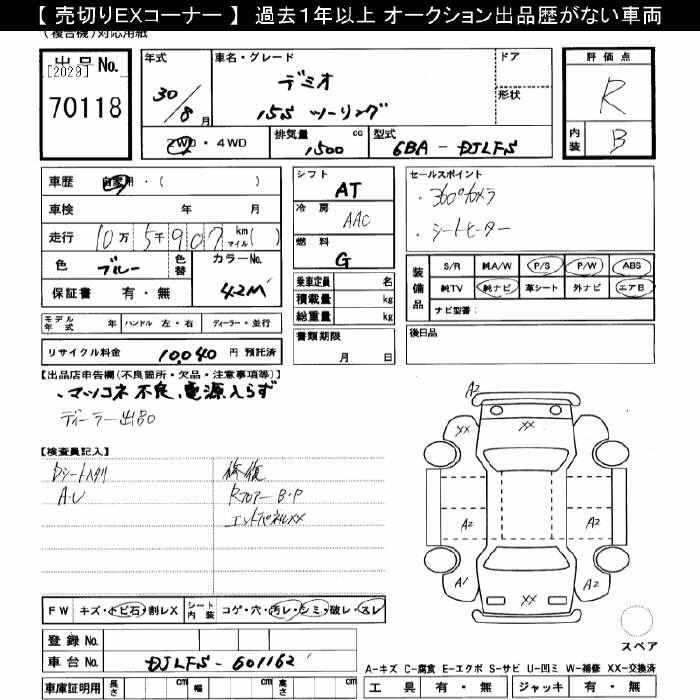 【 売切りEXコーナー 】 過去1年以上 オークション出品歴がない車両
(複合機)対応用紙
出品No.
[2029]
70118
年式
30/8月
車名・グレード
デミオ
15S ツーリング
ドア
形状
評価点
R
内装
B
2WD・4WD
排気量
1500 cc
型式
6BA - DJLFS
車歴
自家用・( )
車検 年 月
走行 10万 5千 907 km マイル( )
色 ブルー
色替
カラーNo.
42M
保証書 有・無
シフト
AT
冷房
AAC
燃料
G
乗車定員 名
積載量 kg
総重量 kg
セールスポイント
・360°カメラ
・シートヒーター
装備品
S/R 純A/W P/S P/W ABS
純TV 純ナビ 革シート 外ナビ エアB
ナビ型番:
モデル年式 年 ハンドル 左・右 ディーラー・並行
リサイクル料金 10,040 円 預託済
書類期限
月 日
後日品
【出品店申告欄(不良箇所・欠品・注意事項等)】
・マツコネ不良、電源入らず
ディーラー出品。
【検査員記入】
Dシートヘタリ
A・U
修復
RフロアーB・P
エンドパネルXX
A2
XX
XX
A2
A2
A1
A2
XX
A2
スペア
FW キズ・トビ石・割レX
シート内装 コゲ・穴・汚レ・シミ・破レ・スレ
登録No.
車台No. DJLFS-601162
車庫証明用 長さ cm 幅 cm 高さ cm
A-キズ C-腐食 E-エクボ S-サビ U-凹ミ W-補修 XX-交換済
工具 有・無 ジャッキ 有・無